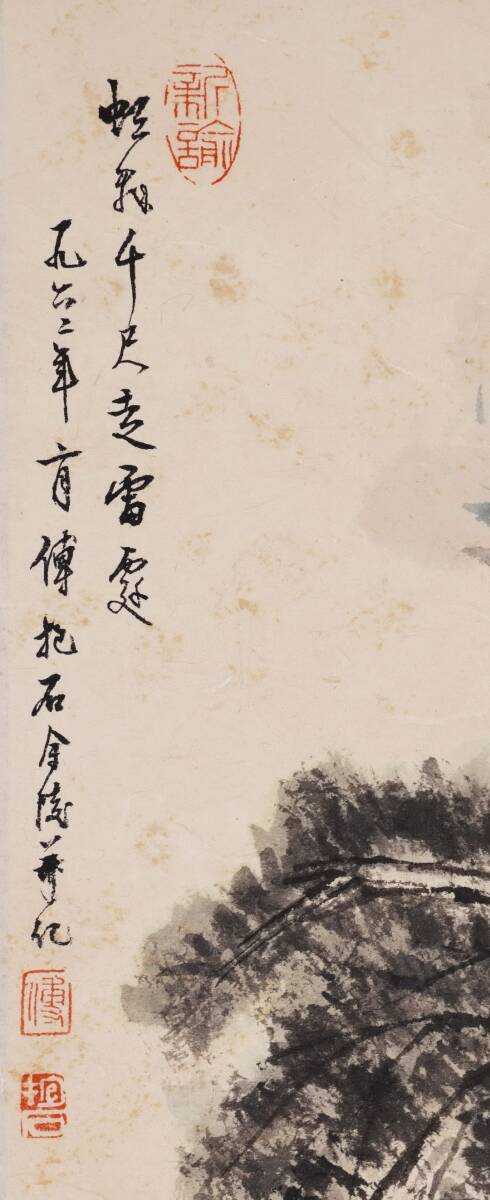 新喻
千尺走雷霆
一九六二年二月傅抱石金陵記
傅
抱石